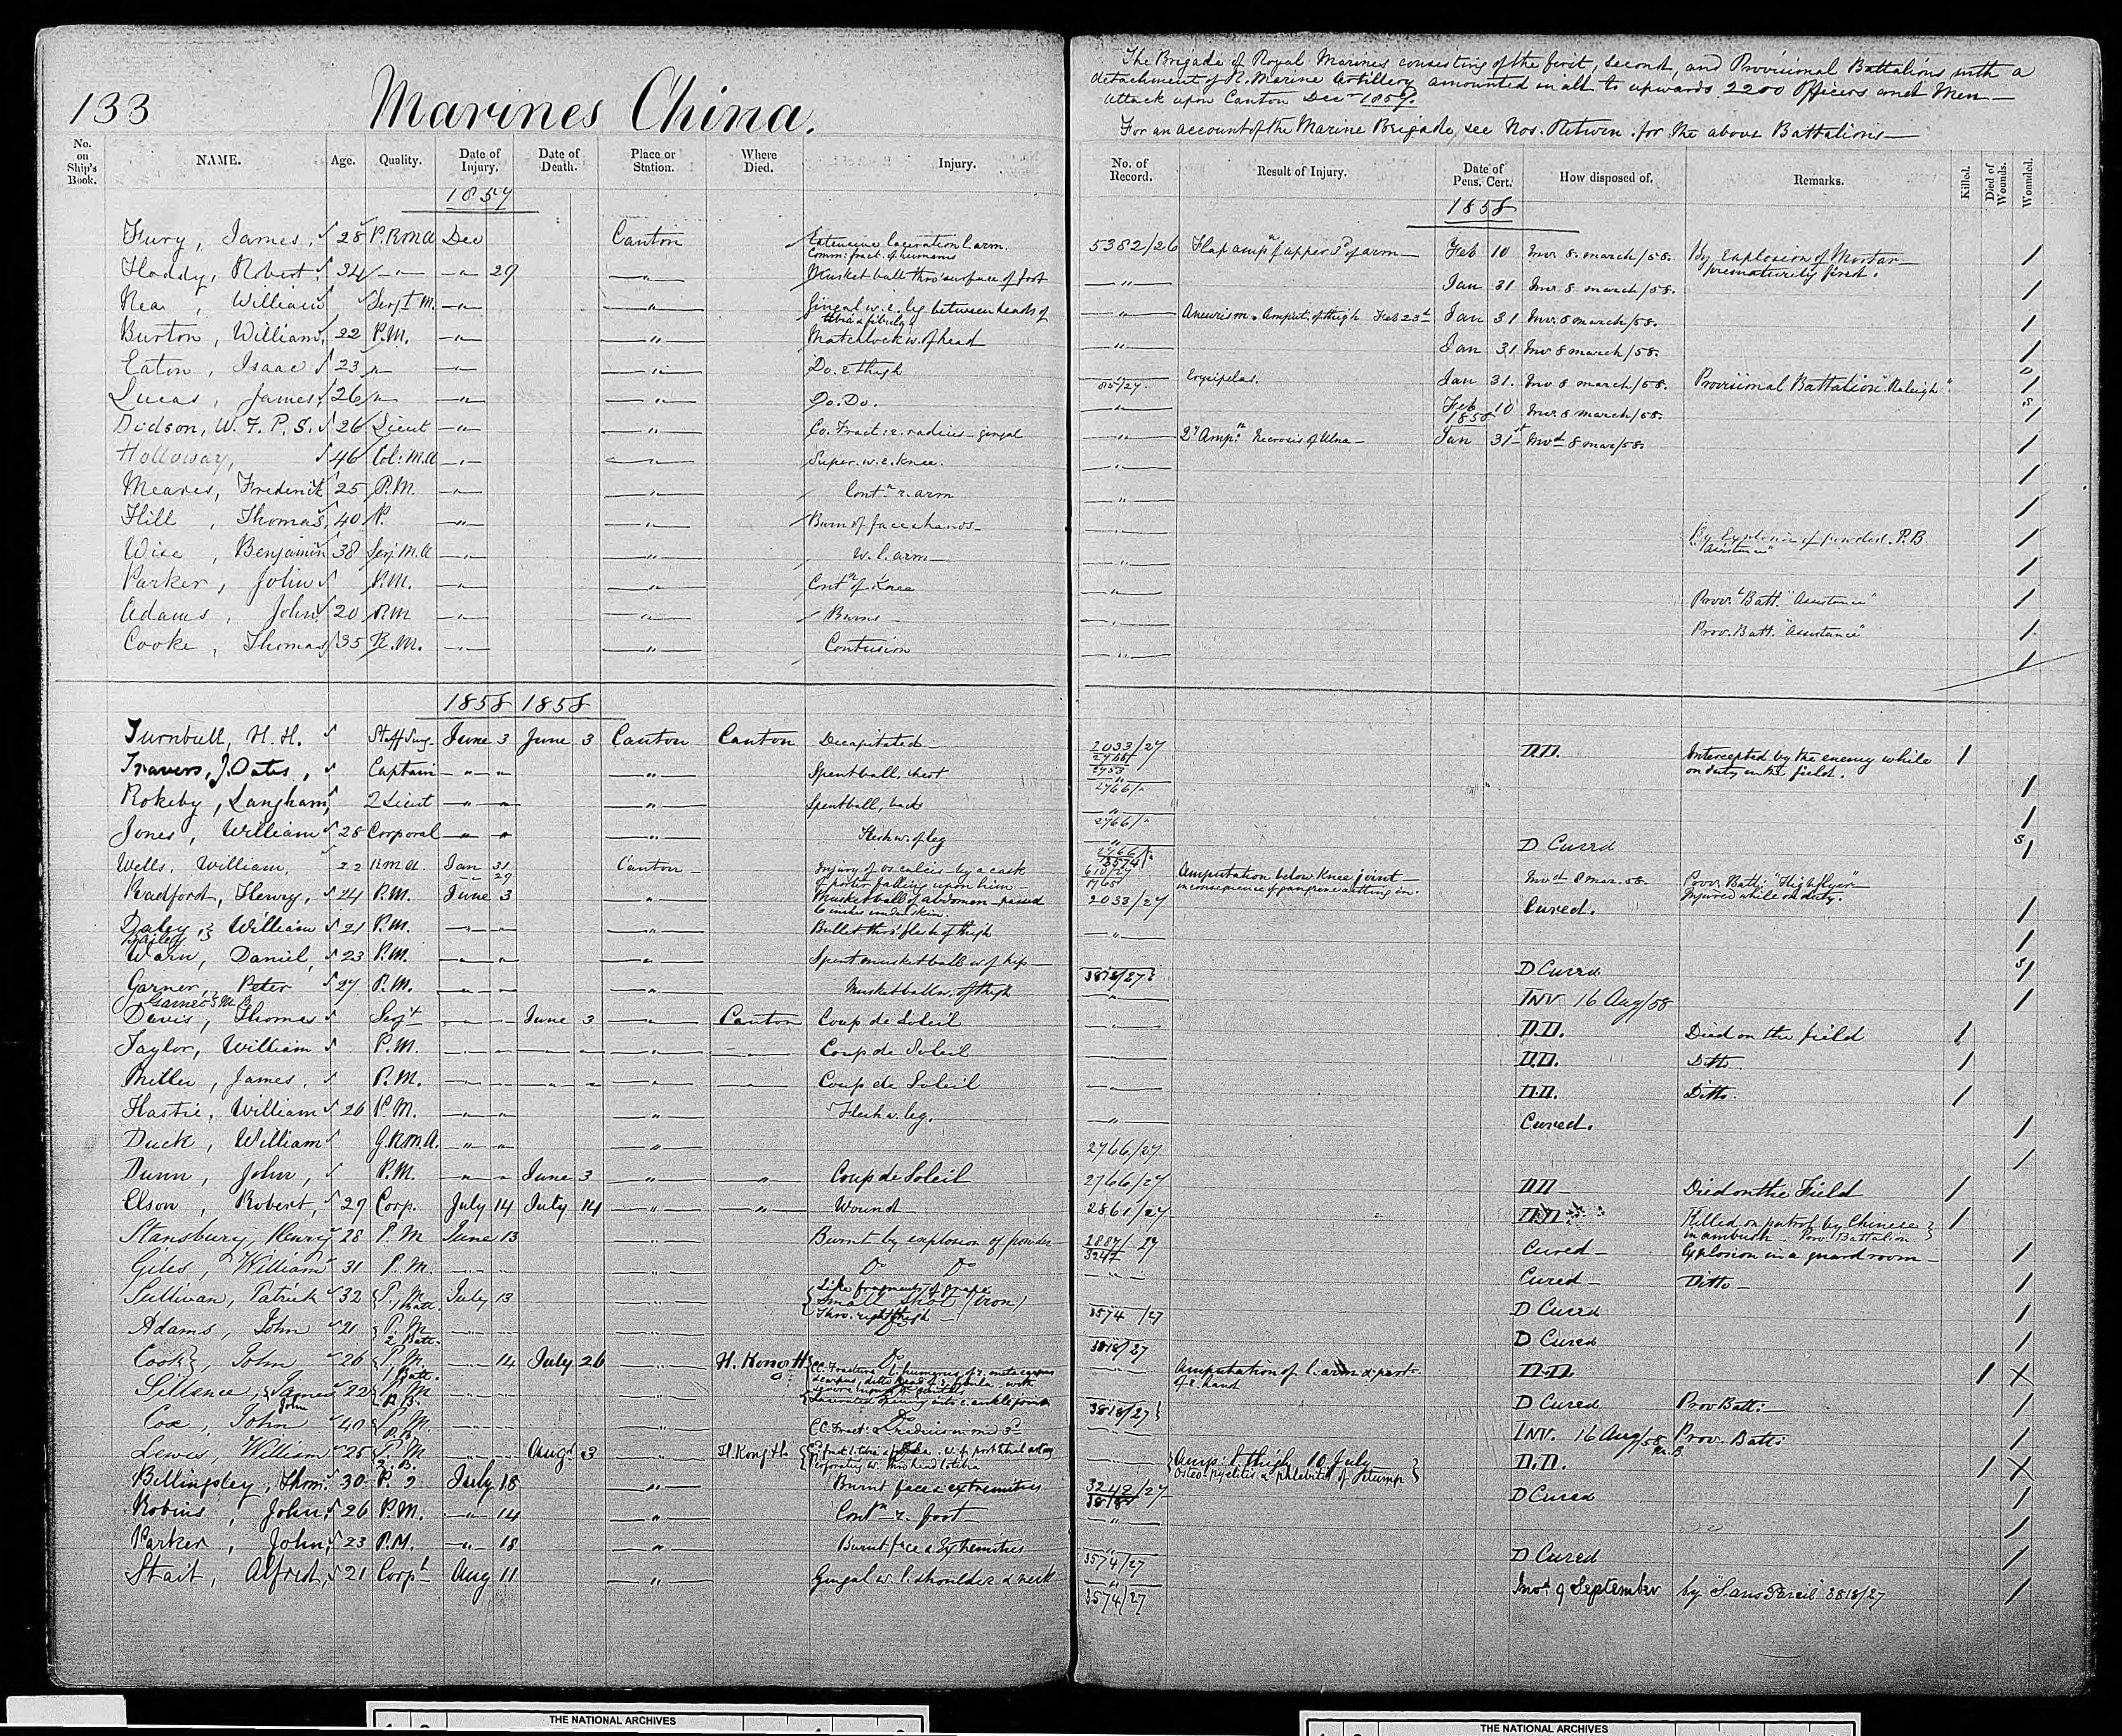 133
Marines China.
The Brigade of Royal Marines consisting of the first, second, and Provisional Battalions with a
detachment of R. Marine Artillery amounted in all to upwards 2200 Officers and Men —
attack upon Canton Decr 1857.
For an account of the Marine Brigade, see Nos. Return for the above Battalions —
No. on Ship's Book. NAME. Age. Quality. Date of Injury. Date of Death. Place or Station. Where Died. Injury. No. of Record. Result of Injury. Date of Pens. Cert. How disposed of. Remarks. Killed. Died of Wounds. Wounded.
1857 1858
Fury, James, 28 P.RMA Dec Canton Extensive laceration l. arm. Comm: fract. of humerus 5382/26 Flap ampn of upper 3d of arm — Feb 10 Inv. 8. march/58. By Explosion of Mortar prematurely fired. /
Hoddy, Robert 34 — " — — " — 29 — " — Musket ball thro' surface of foot — " — Jan 31 Inv. 8 march/58. /
Rea, William Sergt M. — " — — " — Gingal w. r. leg between heads of tibia & fibula — " — Aneurism. Amput. of thigh Feb 23d Jan 31 Inv. 8 march/58. /
Burton, William, 22 P.M. — " — — " — Matchlock w. of head — " — Jan 31 Inv 8 march/58. /
Eaton, Isaac 23 " — " — — " — Do. r thigh — " — 85/27. Erysipelas. Jan 31. Inv 8 march/58. Provisional Battalion "Raleigh". /
Lucas, James, 26 " — " — — " — Do. Do. — " — Feb 10 Inv. 8 march/58. /
Dodson, W. F. P. S. 26 Lieut — " — — " — Co. Fract: r. radius — gingal — " — 2y Ampn. Necrosis of Ulna — 1858 Jan 31st Invd 8 mar/58. /
Holloway, 46 Col: M.A — " — — " — Super. w. r. knee. — " — /
Meares, Frederick 25 P.M. — " — — " — Contn r. arm — " — /
Hill, Thomas, 40 P. — " — — " — Burn of face & hands — — " — By Explosion of powder. P.B. "Assistance" /
Wise, Benjamin 38 Serj. M.A — " — — " — W. l. arm — — " — /
Parker, John P.M. — " — — " — Contn of Knee — " — Prov. Batt. "Assistance" /
Adams, John, 20 P.M — " — — " — Burns — — " — Prov. Batt. "Assistance" /
Cooke, Thomas 35 R.M. — " — — " — Contusion — " — /
1858 1858
Turnbull, H. H. Staff Surg. June 3 June 3 Canton Canton Decapitated — 2033/27 D.D. Intercepted by the enemy while on duty in the field. 1
Travers, J. Oates, Captain — " — " — — " — Spent ball, chest 2766/" /
Rokeby, Langham, 2 Lieut — " — " — — " — Spent ball, back 2766/" /
Jones, William 28 Corporal — " — " — — " — Flesh w. of leg 2766/" D Cured /
Wells, William, 22 RMA. Jan 31 29 Canton — Injury of os calcis by a cask of porter falling upon him — 3574 610/27 1765 Amputation below knee joint — in consequence of gangrene setting in. Invd 8 Mar. 58. Prov. Batt: "Highflyer" Injured while on duty.
Radford, Henry, 24 P.M. June 3 — " — Musket ball of abdomen — passed 6 inches under skin. 2033/27 Cured. /
Daley, William 21 P.M. — " — " — — " — Bullet thro' flesh of thigh — " — /
Bailey
Warn, Daniel, 23 P.M. — " — " — — " — Spent musket ball w of hip — 3818/27 D Cured /
Garner, Peter 27 P.M. — " — " — — " — Musket ball w. of thigh — " — INV 16 Aug/58 /
Garner
Davis, Thomas Sergt — " — " — June 3 — " — Canton Coup de Soleil — " — D.D. Died on the field 1
Taylor, William P.M. — " — " — — " — " — — " — — " — Coup de Soleil — " — D.D. Ditto. 1
Miller, James, P.M. — " — " — — " — " — — " — — " — Coup de Soleil — " — D.D. Ditto. 1
Hastie, William 26 P.M. — " — " — — " — Flesh w. leg. — " — Cured. /
Duck, William G.RMA. — " — " — — " — 2766/27 /
Dunn, John, P.M. — " — " — June 3 — " — — " — Coup de Soleil 2766/27 DD — Died on the Field 1
Elson, Robert, 29 Corp. July 14 July 14 — " — — " — Wound 2861/27 D.D. Killed on patrol by Chinese in ambush — Prov. Battalion 1
Stansbury, Henry 28 P.M June 13 — " — Burnt by explosion of powder 2887/27 3242 Cured — Explosion in a guard room — /
Giles, William 31 P.M. — " — " — — " — Do Do — " — Cured — Ditto — /
Sullivan, Patrick 32 P.M. 1 Batt. July 13 — " — Like fragments of grape Small Shot (iron) Thro. right thigh — 3574/27 D Cured /
Adams, John 21 P.M 2 Batt. — " — " — — " — Do 3818/27 D Cured /
Cook, John 26 P.M. 1 Batt. — " — 14 July 26 — " — H. Kong H. — " — Amputation of l. arm & part of r. hand D.D. 1 X
Sillence, James 22 P.M P.B. — " — " — — " — Lacerated opening into r. ankle joint 3818/27 D Cured Prov Batt: — /
John
Cox, John 40 P.M. P.B. — " — " — — " — CC. Fract: radius in mid 3d — — " — INV. 16 Aug/58 Prov. Batt: /
Lewis, William 25 P.M 2 B. — " — " — Augt 3 — " — H. Kong H. — " — Amp: l. thigh 10 July Osteo myelitis & phlebitis of Stump D.D. 1 X
Billingsley, Thom. 30 P. July 18 — " — Burnt face & extremities 3242/27 3818 D Cured /
Robins, John 26 P.M. — " — 14 — " — Contn r. foot — — " — /
Parker, John, 23 P.M. — " — 18 — " — Burnt face & Extremities 3574/27 D Cured /
Stait, Alfred, 21 Corpl Aug 11 — " — Gingal w. l. shoulder & neck 3574/27 Invd. 9 September by "Sans Pareil" 3818/27 /
THE NATIONAL ARCHIVES
THE NATIONAL ARCHIVES